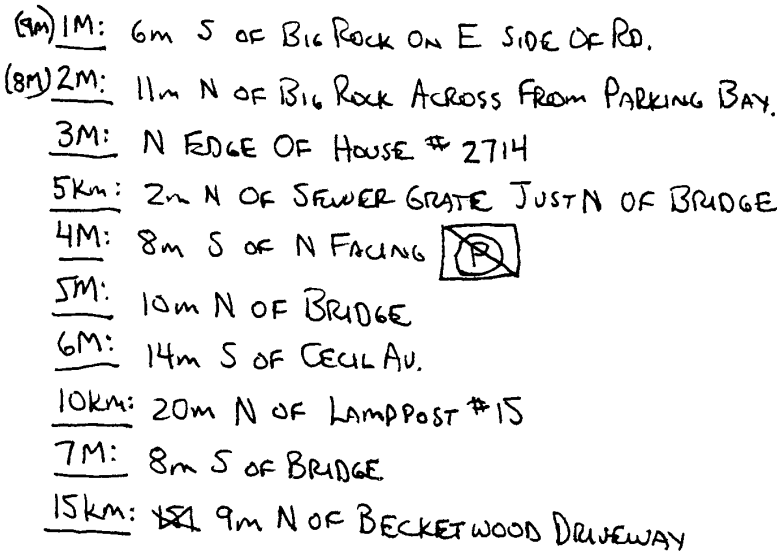 (9M) 1M: 6m S OF BIG ROCK ON E SIDE OF RD.
(8M) 2M: 11m N OF BIG ROCK ACROSS FROM PARKING BAY.
3M: N EDGE OF HOUSE # 2714
5Km: 2m N OF SEWER GRATE JUST N OF BRIDGE
4M: 8m S OF N FACING P
5M: 10m N OF BRIDGE
6M: 14m S OF CECIL AV.
10Km: 20m N OF LAMPPOST #15
7M: 8m S OF BRIDGE
15km: 9m N OF BECKETWOOD DRIVEWAY